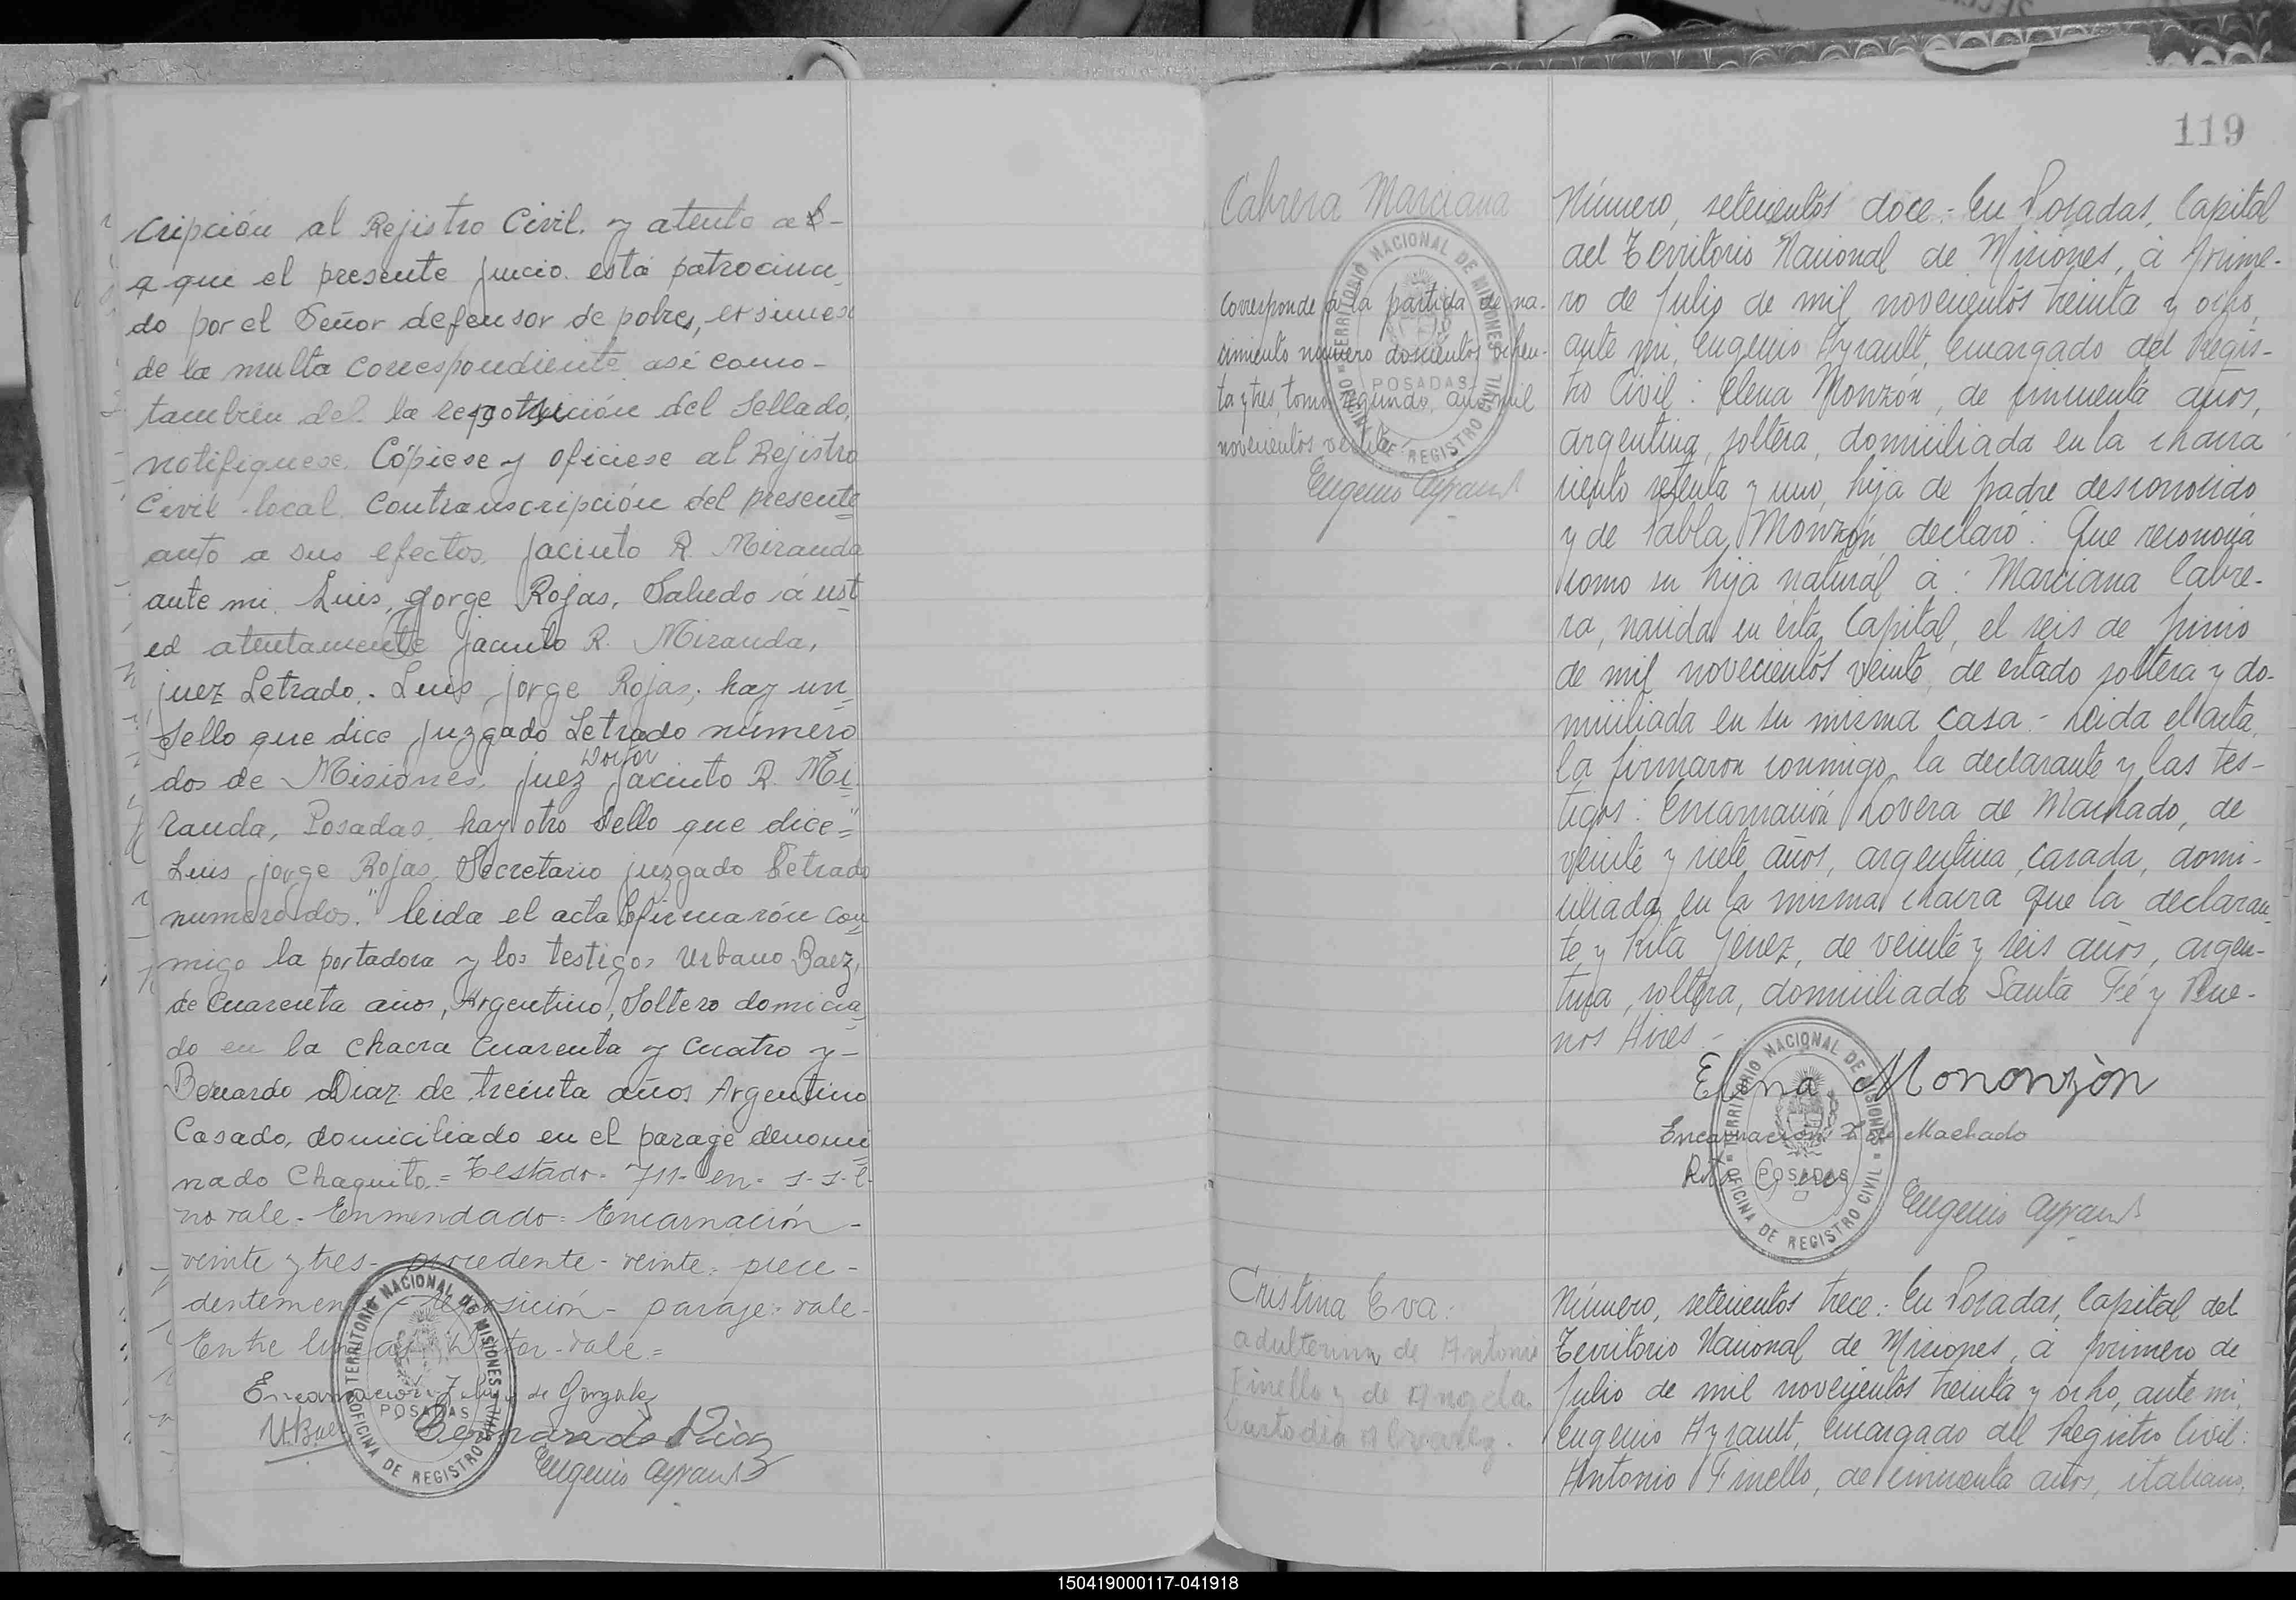 cripción al Rejistro Civil. y atento a
a que el presente juicio. está patrocina
do por el Señor defensor de pobres, exsimes
de la multa correspondiente asi como-
tambien del la reposición del Sellado,
notifiquese. Cópiese y oficiese al Rejistro
Civil local. Contranscripción del presente
auto a sus efectos. Jacinto R. Miranda
ante mi. Luis, Jorge Rojas, Saludo á ust
ed atentamente Jacinto R. Miranda,
juez Letrado. Luis Jorge Rojas, hay un
Sello que dice Juzgado Letrado número
Doctor
dos de Misiones, juez Jacinto R. Mi
randa, Posadas, hay otro Sello que dice="
Luis Jorge Rojas, Secretario juzgado Letrado
numero dos." leida el acta firmarón con
migo la portadora y los testigos Urbano Baez,
de Cuarenta años, Argentino, Soltero domicia
do en la Chacra Cuarenta y Cuatro y-
Bernardo Diaz de treinta años Argentino
Casado, domiciliado en el paraje denomi
nado Chaquito.= Testado- 711- en- s-s-l-
no vale- Enmendado= Encarnación-
veinte y tres- procedente- veinte- prece-
dentemente- reposición- paraje: vale-
Entre lineas Doctor- vale=
Encarnación de Gonzalez
U. Baez
Bernardo Diaz
Eugenio Ayrault
TERRITORIO NACIONAL DE MISIONES
POSADAS
OFICINA DE REGISTRO CIVIL
119
Cabrera Marciana
Corresponde á la partida de na-
cimiento número doscientos ochen-
ta y tres, tomo segundo, año mil
novecientos veinte
Eugenio Ayrault
TERRITORIO NACIONAL DE MISIONES
POSADAS
OFICINA DE REGISTRO CIVIL
Número, setecientos doce:- En Posadas, Capital
del Territorio Nacional de Misiones, á prime-
ro de Julio de mil novecientos treinta y ocho,
ante mi, Eugenio Ayrault, Encargado del Regis-
tro Civil: Elena Monzón, de cincuenta años,
argentina, soltera, domiciliada en la chacra
ciento setenta y uno, hija de padre desconocido
y de Pabla Monzón, declaró: Que reconocía
como su hija natural á: Marciana Cabre-
ra, nacida en esta Capital, el seis de Junio
de mil novecientos veinte, de estado soltera y do-
miciliada en su misma casa.- Leida el acta,
la firmaron conmigo, la declarante y las tes-
tigos: Encarnación Lovera de Machado, de
veinte y siete años, argentina, casada, domi-
ciliada en la misma chacra que la declaran-
te y Rita Génez, de veinte y seis años, argen-
tina, soltera, domiciliada Santa Fé y Bue-
nos Aires.-
Elena Mononzòn
Encarnación L de Machado
Rita Genez
Eugenio Ayrault
TERRITORIO NACIONAL DE MISIONES
POSADAS
OFICINA DE REGISTRO CIVIL
Cristina Eva:
adulterina de Antonio
Finello y de Angela
Custodia Alvarez.
Número, setecientos trece: En Posadas, Capital del
Territorio Nacional de Misiones, á primero de
Julio de mil novecientos treinta y ocho, ante mi,
Eugenio Ayrault, Encargado del Registro Civil:
Antonio Finello, de cincuenta años, italiano,
150419000117-041918